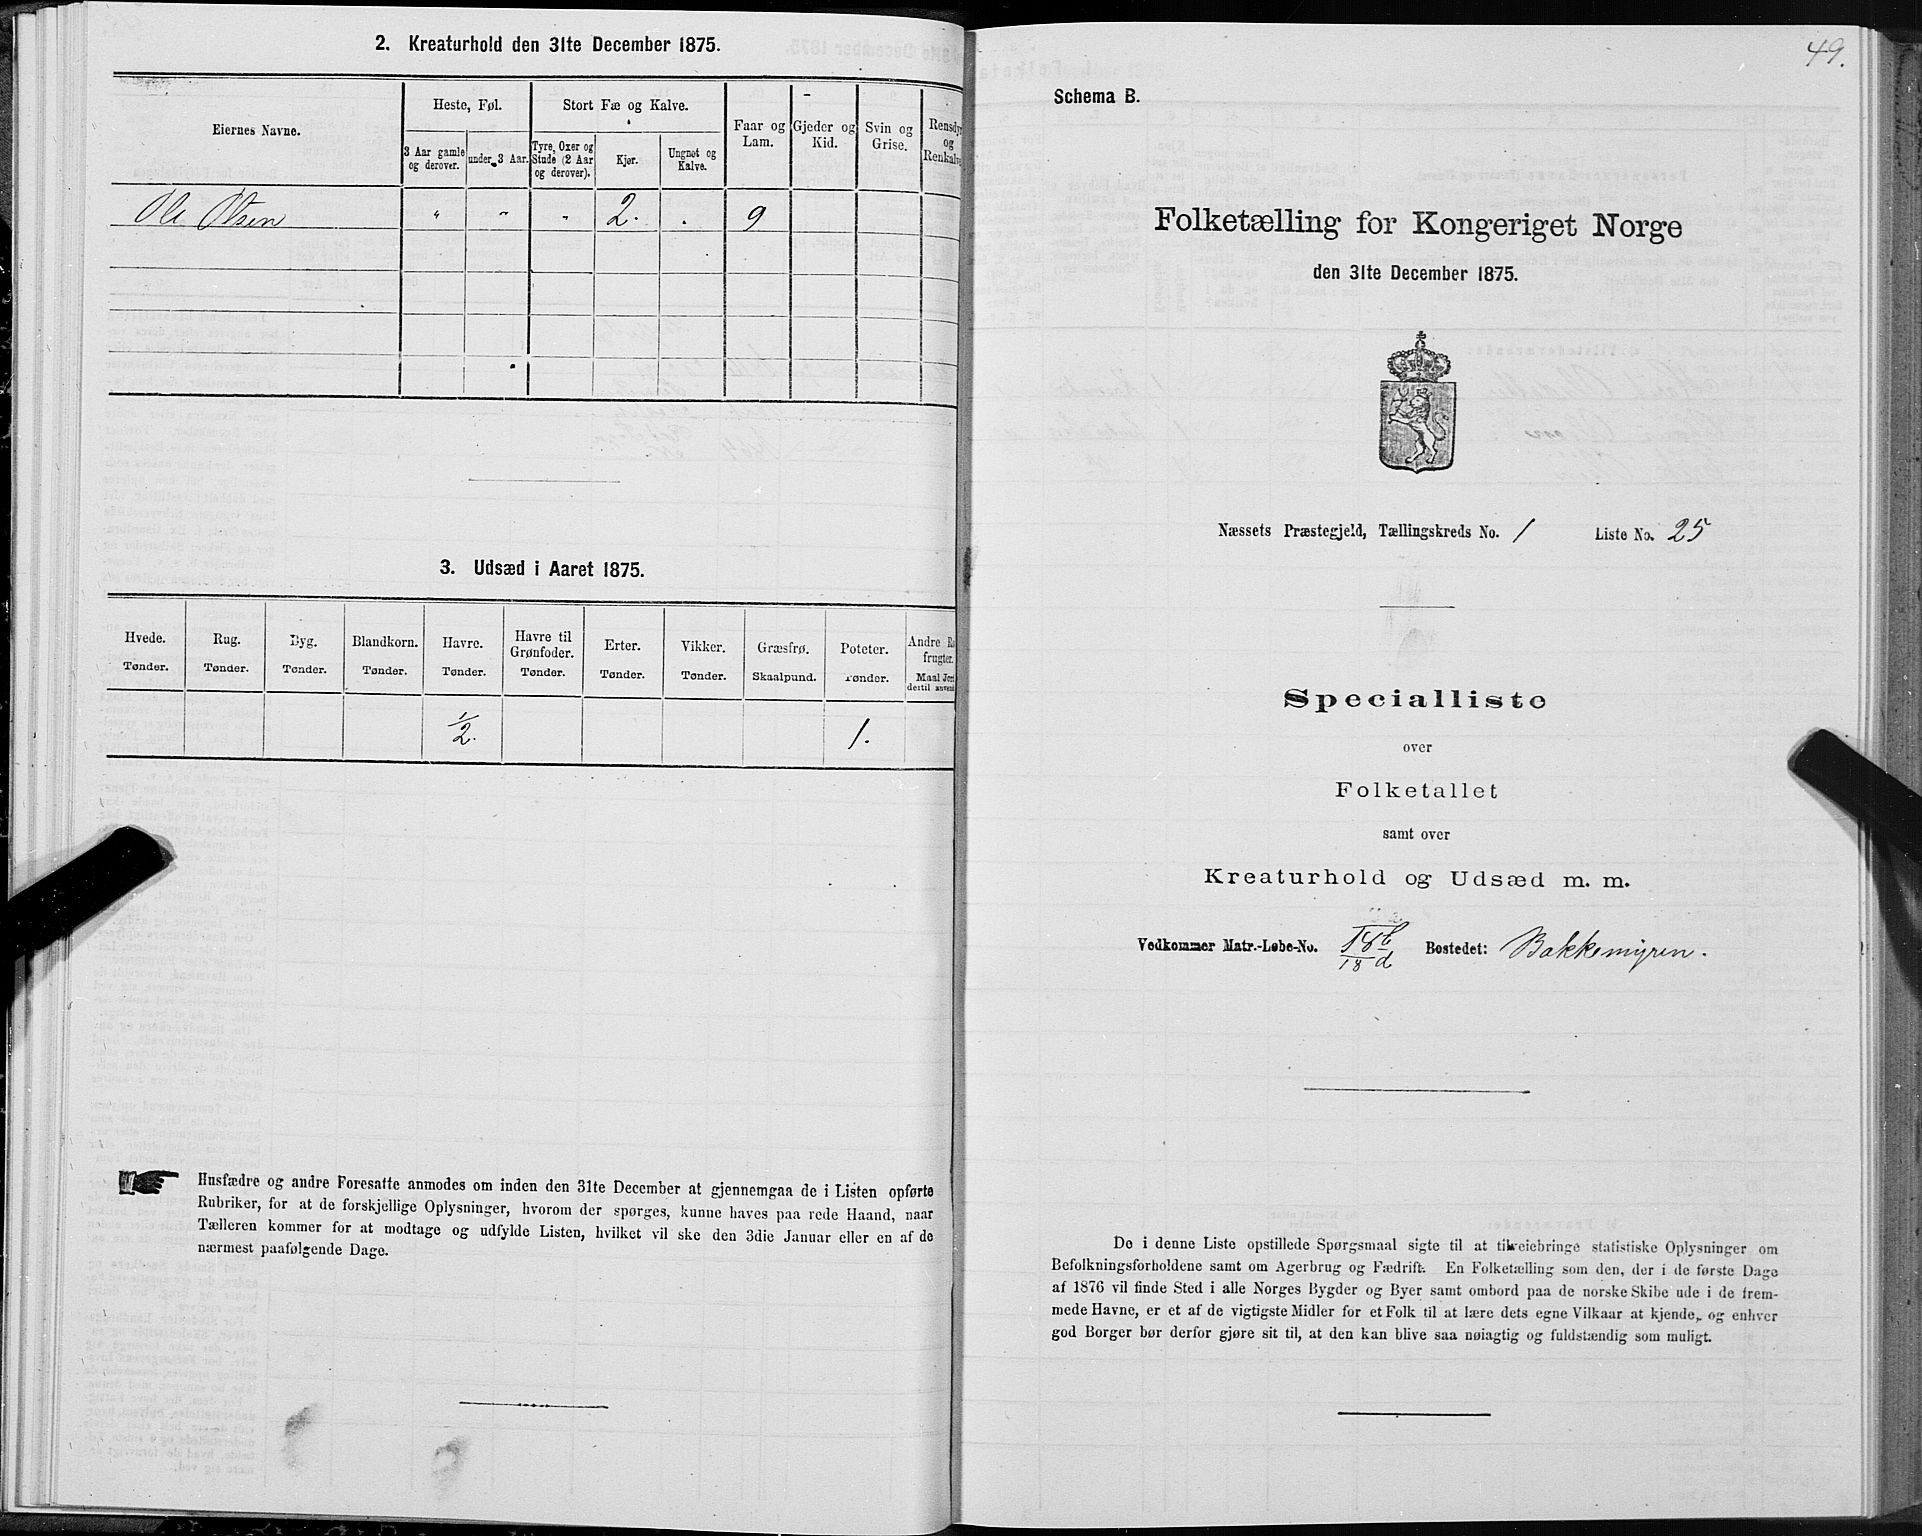 2. Kreaturhold den 31te December 1875.
Eiernes Navne.
Heste, Føl.
Stort Fæ og Kalve.
Faar og Lam.
Gjeder og Kid.
Svin og Grise.
Rensdyr og Renkalve
3 Aar gamle og derover.
under 3 Aar.
Tyre, Oxer og Stude (2 Aar og derover).
Kjør.
Ungnøt og Kalve.
Ole Olsen " " " 2. . 9
3. Udsæd i Aaret 1875.
Hvede. Rug. Byg. Blandkorn. Havre. Havre til Grønfoder. Erter. Vikker. Græsfrø. Poteter. Andre Ro
frugter.
Tønder. Tønder. Tønder. Tønder. Tønder. Tønder. Tønder. Tønder. Skaalpund. Tønder. Maal Jord
dertil anvend
1/2. 1.
Husfædre og andre Foresatte anmodes om inden den 31te December at gjennemgaa de i Listen opførte
Rubriker, for at de forskjellige Oplysninger, hvorom der spørges, kunne haves paa rede Haand, naar
Tælleren kommer for at modtage og udfylde Listen, hvilket vil ske den 3die Januar eller en af de
nærmest paafølgende Dage.
49.
Schema B.
Folketælling for Kongeriget Norge
den 31te December 1875.
Næssets Præstegjeld, Tællingskreds No. 1 Liste No. 25
Specialliste
over
Folketallet
samt over
Kreaturhold og Udsæd m. m.
Vedkommer Matr.-Løbe-No. 18b/18d Bostedet: Bakkemyren.
De i denne Liste opstillede Spørgsmaal sigte til at tilveiebringe statistiske Oplysninger om
Befolkningsforholdene samt om Agerbrug og Fædrift. En Folketælling som den, der i de første Dage
af 1876 vil finde Sted i alle Norges Bygder og Byer samt ombord paa de norske Skibe ude i de frem-
mede Havne, er et af de vigtigste Midler for et Folk til at lære dets egne Vilkaar at kjende, og enhver
god Borger bør derfor gjøre sit til, at den kan blive saa nøiagtig og fuldstændig som muligt.